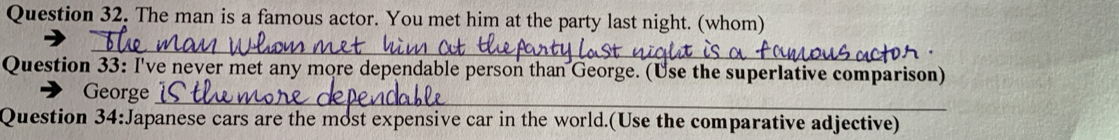 Question 32. The man is a famous actor. You met him at the party last night. (whom)
➔ The man whom met him at the party last night is a famous actor.
Question 33: I've never met any more dependable person than George. (Use the superlative comparison)
➔ George is the more dependable
Question 34:Japanese cars are the most expensive car in the world.(Use the comparative adjective)